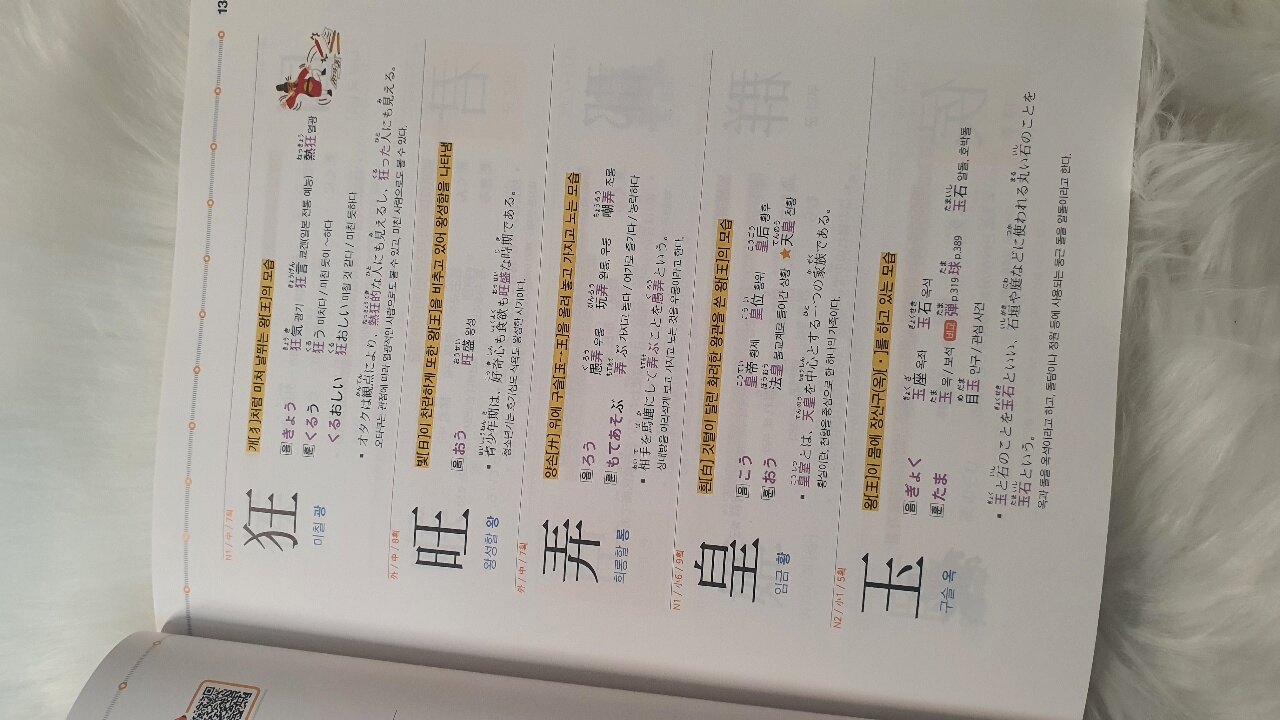 13
N1 / 中 / 7획
狂
미칠 광
개[犭]처럼 미쳐 날뛰는 왕[王]의 모습
음 きょう 狂気 광기 狂言 쿄겐(일본 전통 예능) 熱狂 열광
훈 くるう 狂う 미치다 / 미친 듯이 ~하다
くるおしい 狂おしい 미칠 것 같다 / 미친 듯하다
▪ オタクは観点により、熱狂的な人にも見えるし、狂った人にも見える。
오타쿠는 관점에 따라 열광적인 사람으로도 볼 수 있고, 미친 사람으로도 볼 수 있다.
外 / 中 / 8획
旺
왕성할 왕
빛[日]이 찬란하게 또한 왕[王]을 비추고 있어 왕성함을 나타냄
음 おう 旺盛 왕성
▪ 青少年期は、好奇心も食欲も旺盛な時期である。
청소년기는 호기심도 식욕도 왕성한 시기이다.
外 / 中 / 7획
弄
희롱할 롱
양손[廾] 위에 구슬[玉→王]을 올려 놓고 가지고 노는 모습
음 ろう 愚弄 우롱 玩弄 완롱, 우롱 嘲弄 조롱
훈 もてあそぶ 弄ぶ 가지고 놀다 / 여기로 즐기다 / 농락하다
▪ 相手を馬鹿にして弄ぶことを愚弄という。
상대방을 어리석게 보고 가지고 노는 것을 우롱이라고 한다.
N1 / 小6 / 9획
皇
임금 황
흰[白] 깃털이 달린 화려한 왕관을 쓴 왕[王]의 모습
음 こう 皇帝 황제 皇位 황위 皇后 황후
おう 法皇 불교계로 들어간 상황 ★天皇 천황
▪ 皇室とは、天皇を中心とする一つの家族である。
황실이란, 천황을 중심으로 한 하나의 가족이다.
N2 / 小1 / 5획
玉
구슬 옥
왕[王]이 몸에 장신구(옥)[丶]를 하고 있는 모습
음 ぎょく 玉座 옥좌 玉石 옥석
훈 たま 玉 옥 / 보석 비교 弾 p.319 球 p.389 玉石 알돌, 호박돌
目玉 안구 / 관심 사건
▪ 玉と石のことを玉石といい、石垣や庭などに使われる丸い石のことを
玉石という。
옥과 돌을 옥석이라고 하고, 돌담이나 정원 등에 사용되는 둥근 돌을 알돌이라고 한다.